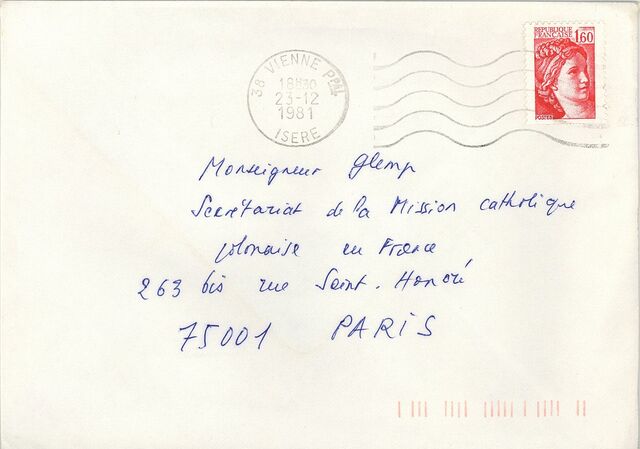 REPUBLIQUE
FRANÇAISE
1,60
38 VIENNE PPAL
18H30
23-12
1981
ISERE
Monseigneur Glemp
Secrétariat de la Mission catholique
polonaise en France
263 bis rue Saint-Honoré
75001 PARIS